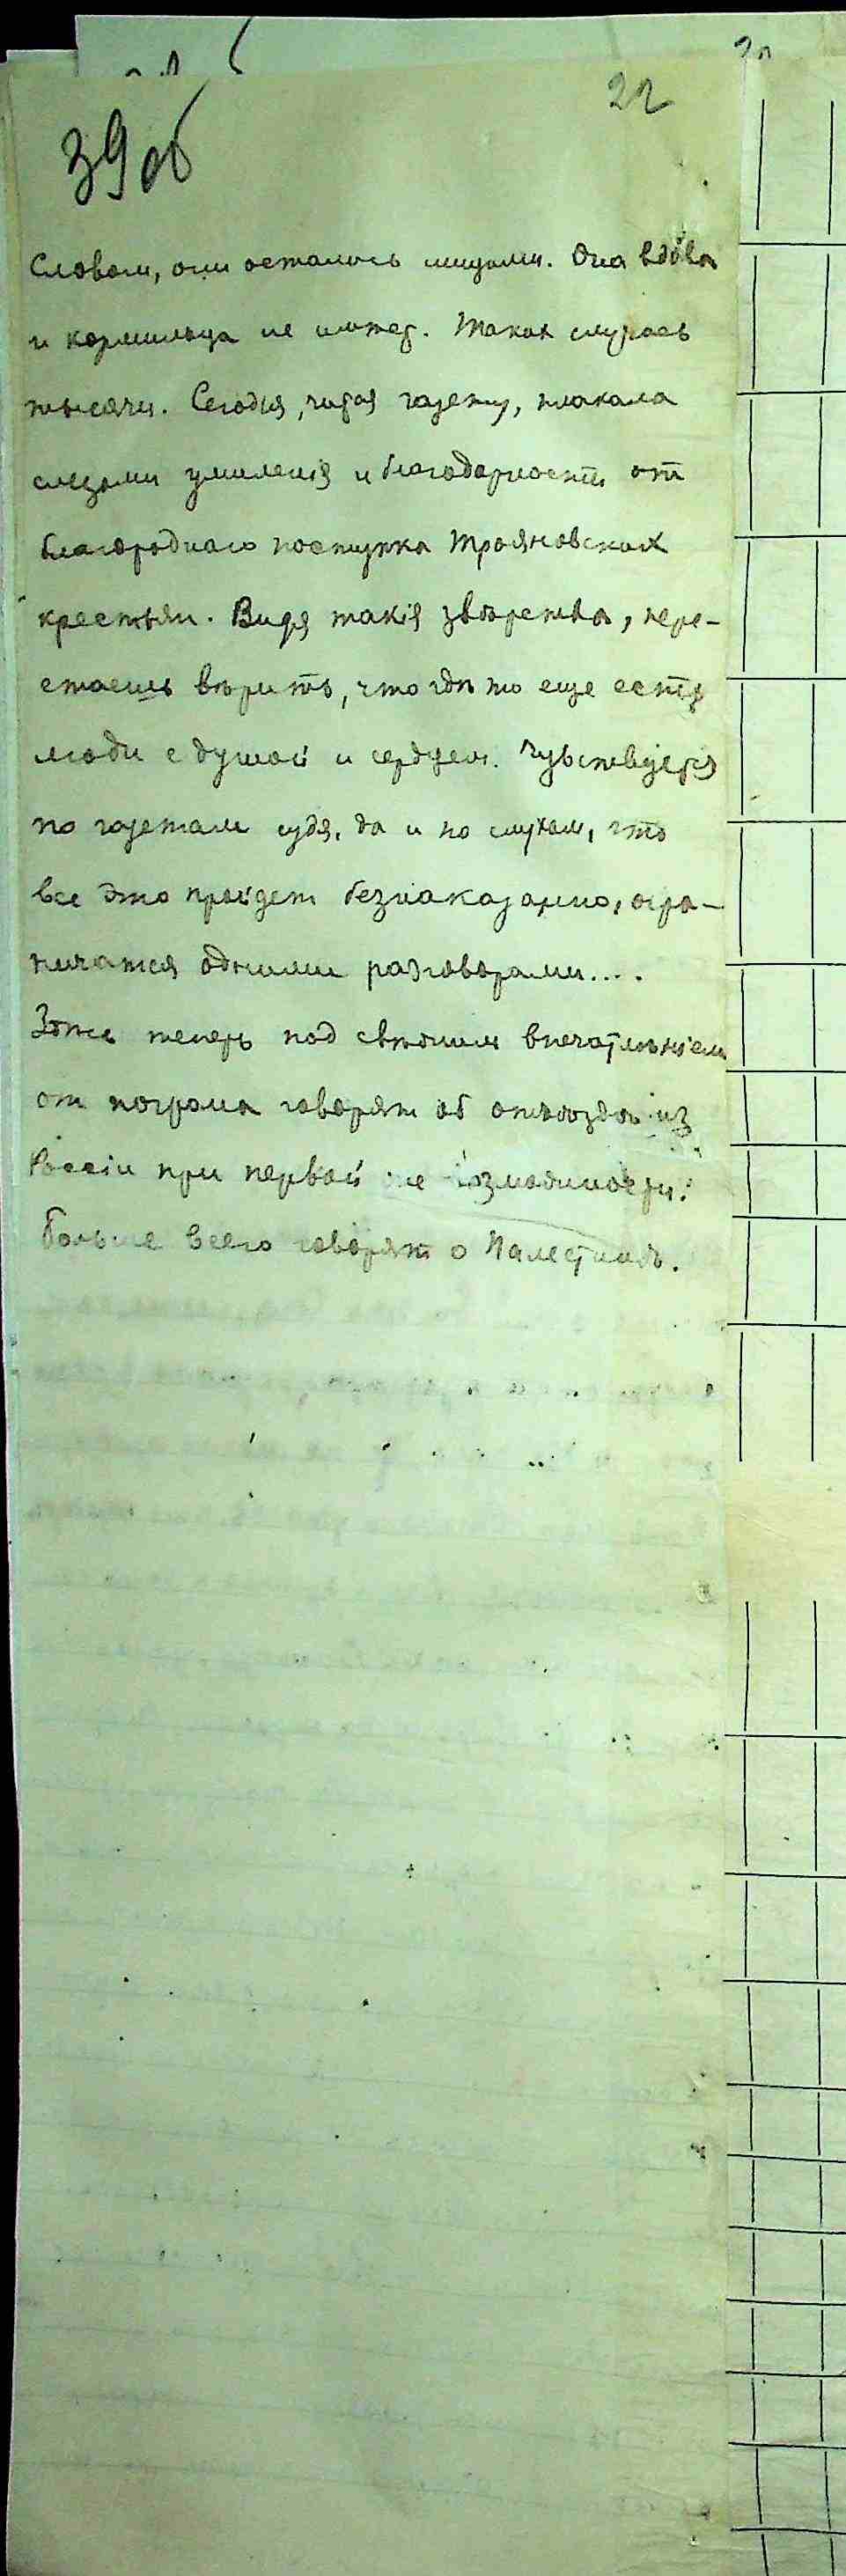 22
39 об
Словом, они остались нищими. Она вдова
и кормильца не имѣет. Таких случаев
тысячи. Сегодня, читая газету, плакала
слезами умиленія и благодарности от
благороднаго поступка Трояновских
крестьян. Видя такія звѣрства, пере-
стаешь вѣрить, что гдѣ то еще есть
люди с душой и сердцем. Чувствуется
по газетам судя, да и по слухам, что
все это пройдет безнаказанно, огра-
ничатся одними разговорами....
Здѣсь теперь под свѣжим впечатлѣніем
от погрома говорят об отъѣздѣ из
Россіи при первой же возможности.
Больше всего говорят о Палестинѣ.